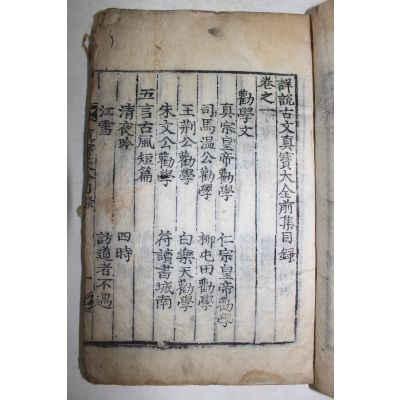 詳說古文真寶大全前集目錄
卷之一
勸學文
真宗皇帝勸學 仁宗皇帝勸學
司馬溫公勸學 柳屯田勸學
王荆公勸學 白樂天勸學
朱文公勸學 符讀書城南
五言古風短篇
清夜吟 四時
江雪 訪道者不遇